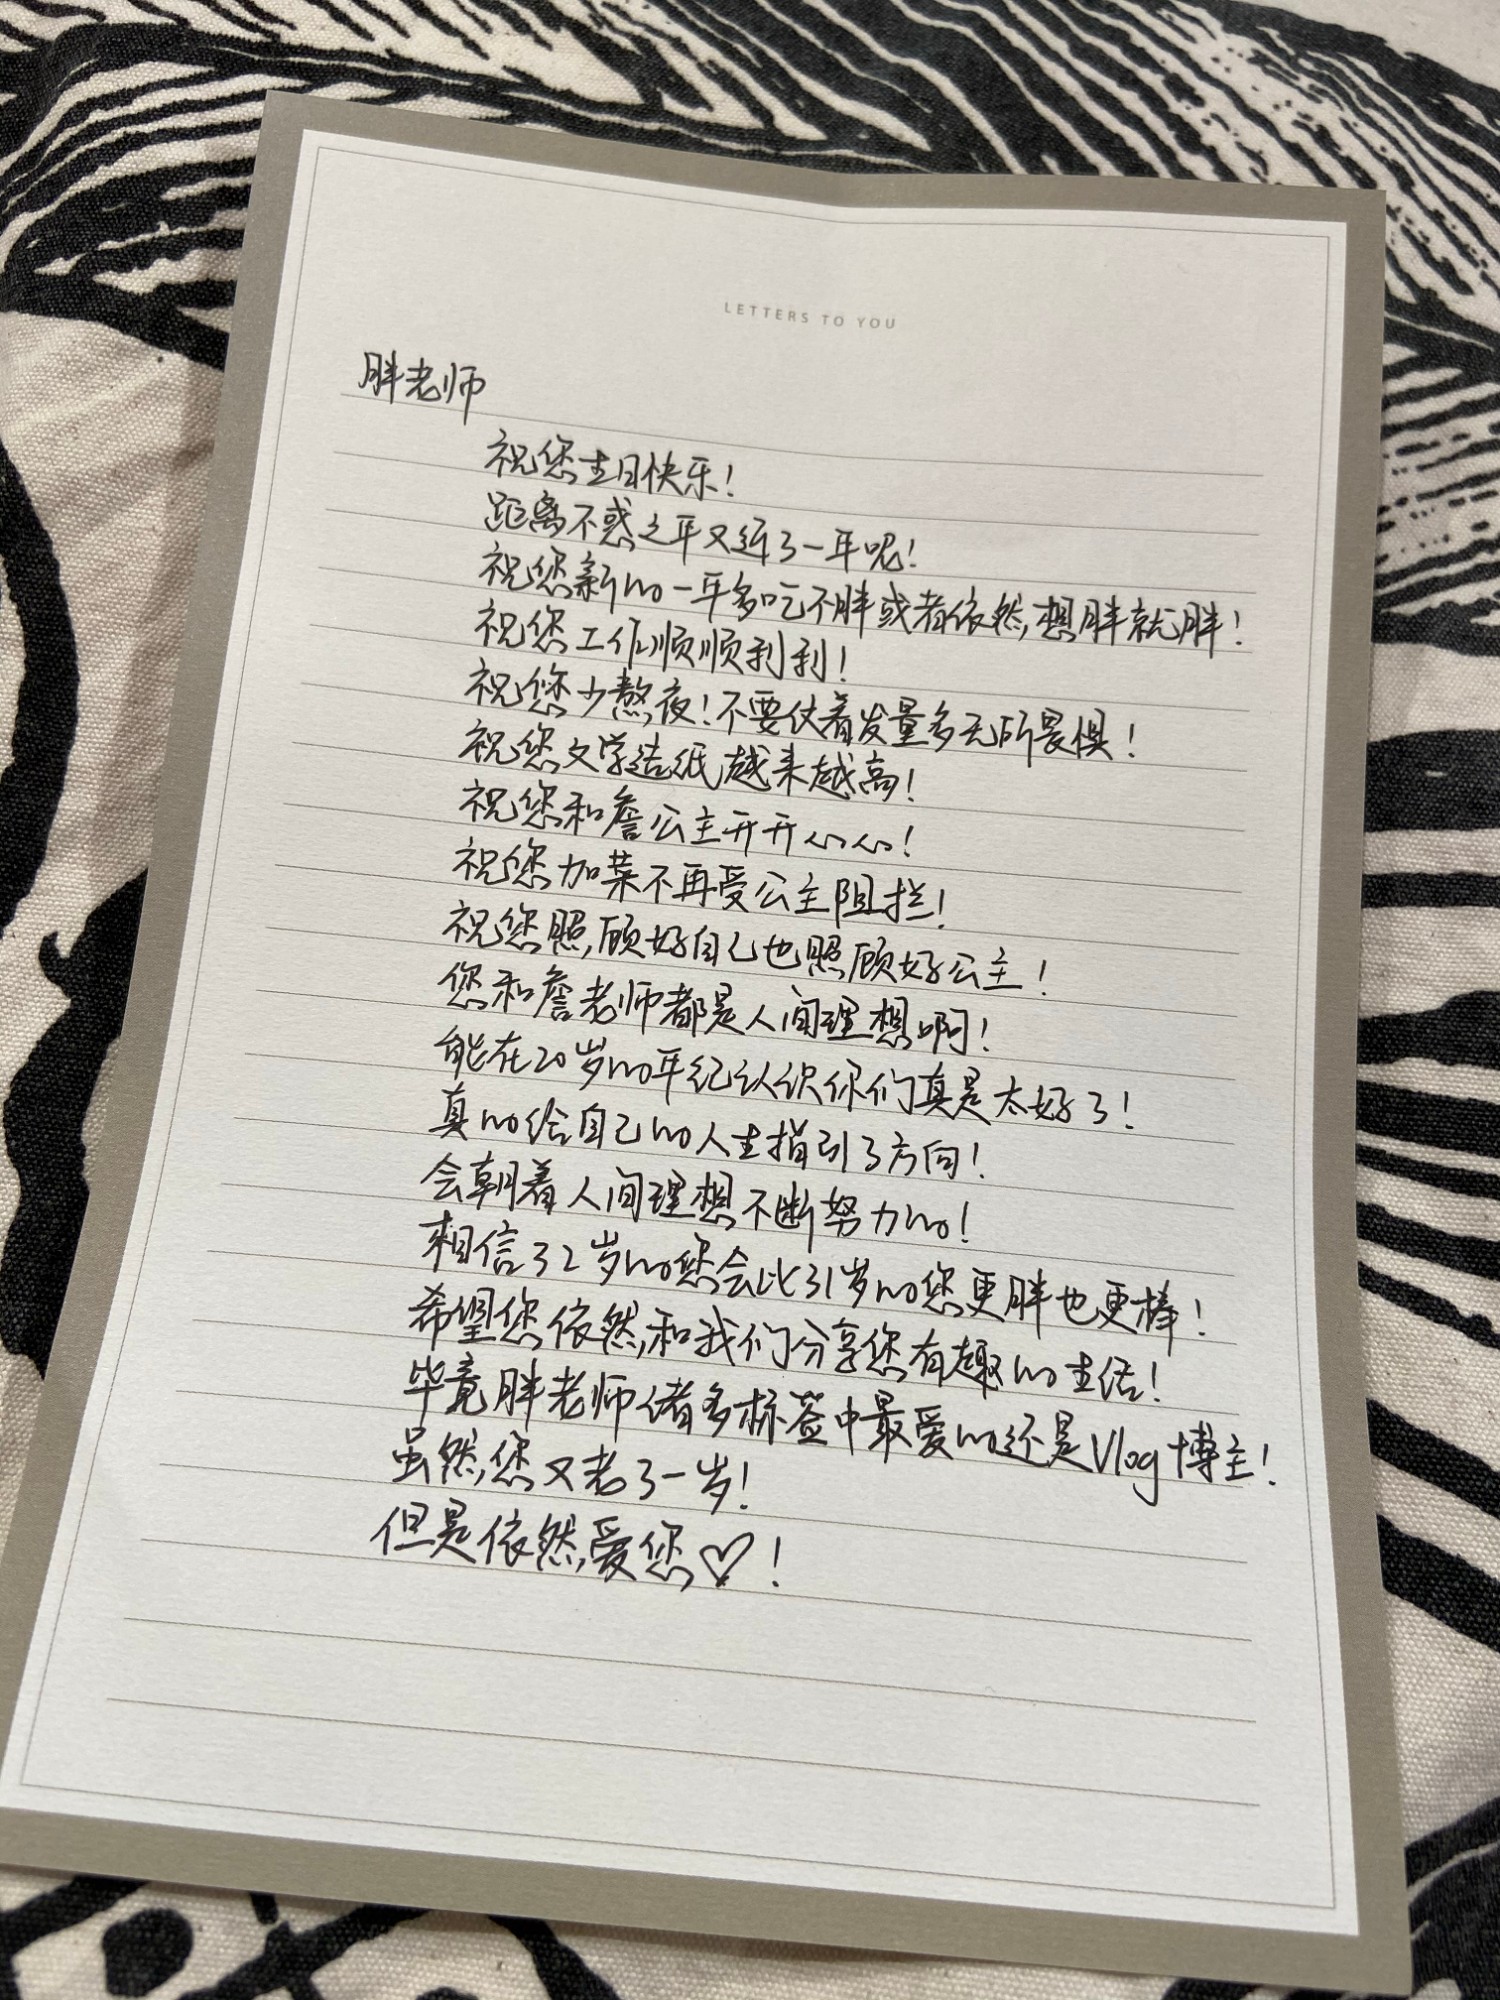 LETTERS TO YOU
胖老师
祝您生日快乐!
距离不惑之年又近了一年呢!
祝您新no一年多吃不胖或者依然想胖就胖!
祝您工作顺顺利利!
祝您少熬夜!不要仗着发量多无所畏惧!
祝您文学造纸越来越高!
祝您和詹公主开开心心!
祝您加菜不再受公主阻拦!
祝您照顾好自己也照顾好公主!
您和詹老师都是人间理想啊!
能在20岁no年纪认识你们真是太好了!
真no给自己no人生指引了方向!
会朝着人间理想不断努力no!
相信32岁no您会比31岁no您更胖也更棒!
希望您依然和我们分享您有趣no生活!
毕竟胖老师诸多标签中最爱no还是Vlog博主!
虽然您又老了一岁!
但是依然爱您♡!